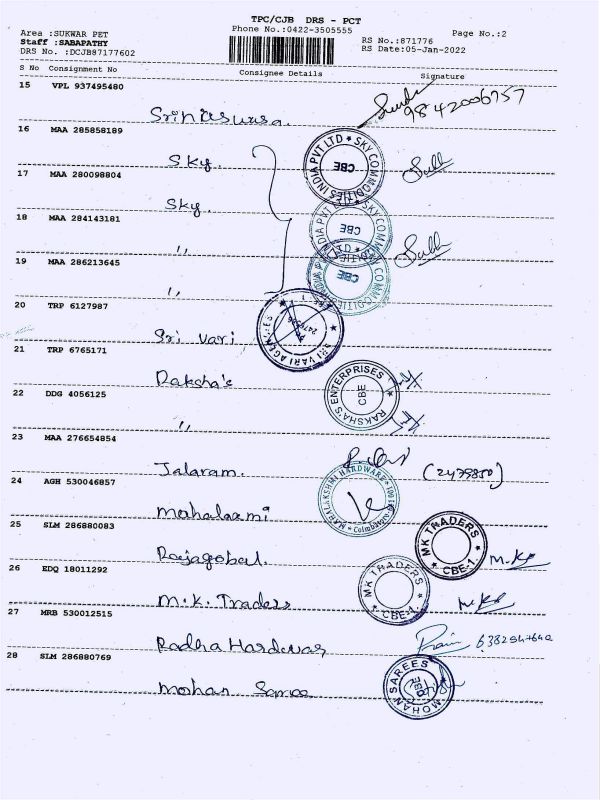 TPC/CJB DRS - PCT
Area :SUKWAR PET
Phone No.:0422-3505555
Page No.:2
Staff :SABAPATHY
RS No.:871776
DRS No. :DCJB87177602
RS Date:05-Jan-2022
S No Consignment No Consignee Details Signature
15 VPL 937495480
9842006757
16 MAA 285858189
Sky.
SKY COMMODITIES INDIA PVT LTD
CBE
17 MAA 280098804
Sky.
SKY COMMODITIES INDIA PVT LTD
CBE
18 MAA 284143181
"
19 MAA 286213645
"
CBE
20 TRP 6127987
Sri Vari
SRI VARI AGENCIES
21 TRP 6765171
Raksha's
RAKSHA'S ENTERPRISES
CBE
22 DDG 4056125
"
23 MAA 276654854
Jalaram.
24 AGH 530046857
Mahalaxmi
MAHALAKSHMI HARDWARE
Coimbatore
25 SLM 286880083
Rajagopal.
MK TRADERS
CBE-1
26 EDQ 18011292
M.K. Traders
MK TRADERS
CBE-1
27 MRB 530012515
Radha Hardwar
28 SLM 286880769
Mohan Saree
MOHAN SAREES
CBE